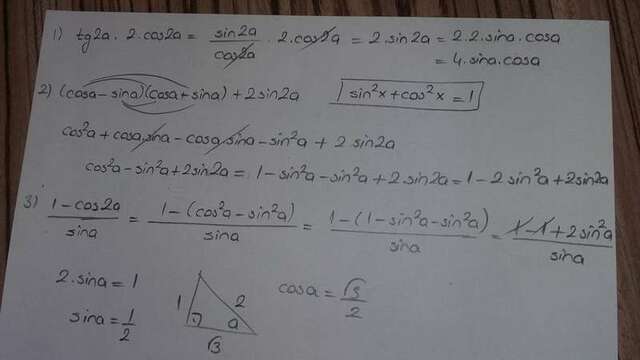 1) tg2a . 2.cos2a = sin2a/cos2a . 2.cos2a = 2.sin2a = 2.2.sina.cosa
= 4.sina.cosa
2) (cosa-sina)(cosa+sina)+2sin2a sin²x+cos²x=1
cos²a + cosa.sina - cosa.sina - sin²a + 2.sin2a
cos²a - sin²a + 2sin2a = 1 - sin²a - sin²a + 2.sin2a = 1 - 2 sin²a + 2sin2a
3) (1-cos2a)/sina = (1-(cos²a-sin²a))/sina = (1-(1-sin²a-sin²a))/sina = (1-1+2sin²a)/sina
2.sina = 1
sina = 1/2
1 2 a √3
cosa = √3/2